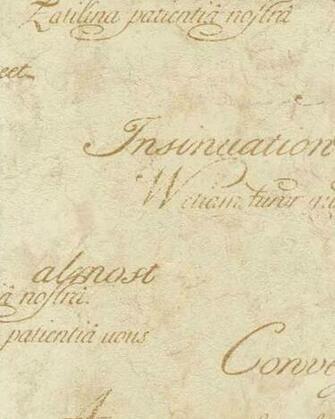 Zatilina patientiâ noſtrâ
eet
Insinuation
W etiam furor
almost
â noſtrâ.
patientiâ uous
Conve